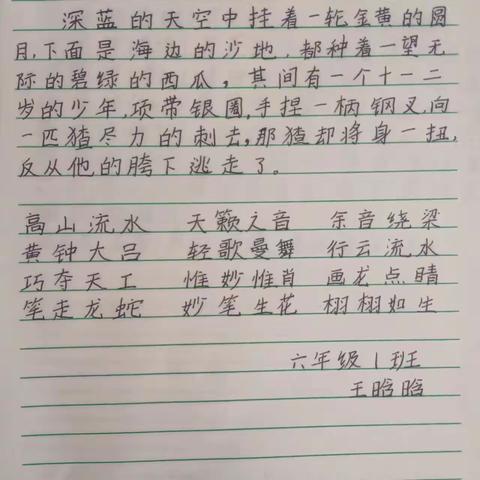 深蓝的天空中挂着一轮金黄的圆
月,下面是海边的沙地,都种着一望无
际的碧绿的西瓜,其间有一个十一二
岁的少年,项带银圈,手捏一柄钢叉,向
一匹猹尽力的刺去,那猹却将身一扭,
反从他的胯下逃走了。
高山流水 天籁之音 余音绕梁
黄钟大吕 轻歌曼舞 行云流水
巧夺天工 惟妙惟肖 画龙点睛
笔走龙蛇 妙笔生花 栩栩如生
六年级1班
王晗晗